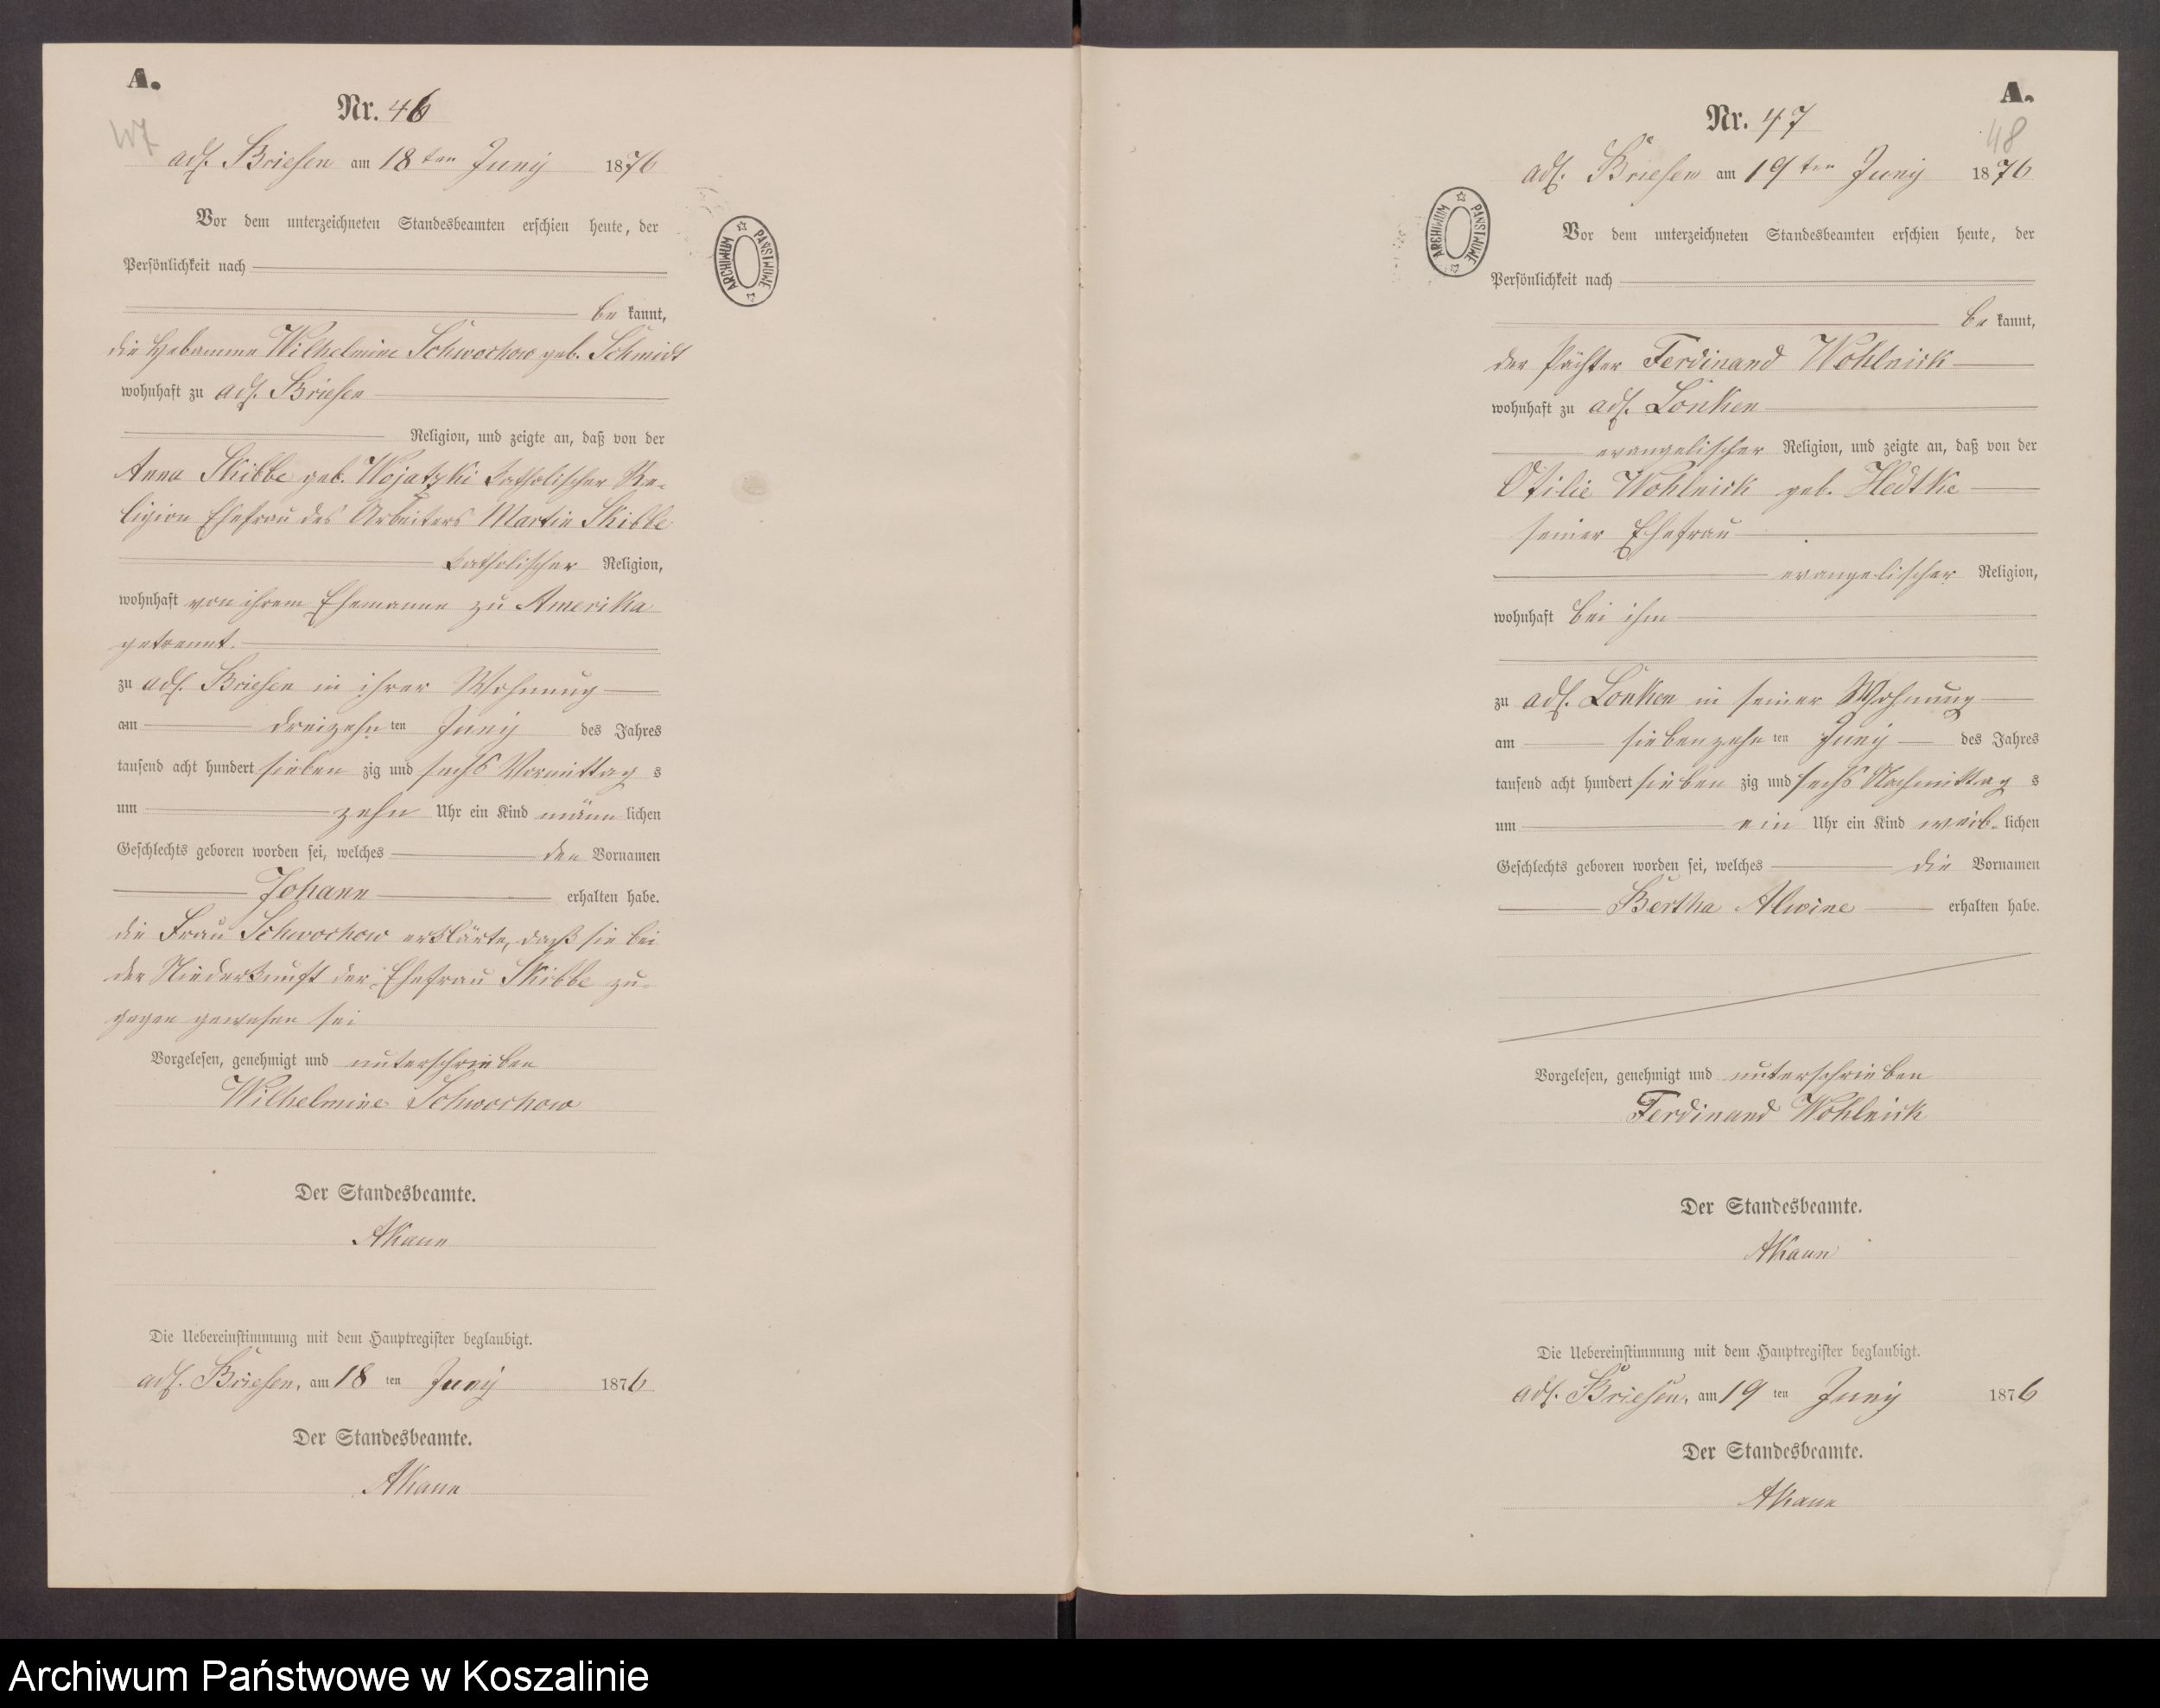 A.
Nr. 46
47
adl. Briesen am 18ten Juny 1876
Vor dem unterzeichneten Standesbeamten erschien heute, der
Persönlichkeit nach
be kannt,
die Hebamme Wilhelmine Schwochow geb. Schmidt
wohnhaft zu adl. Briesen
Religion, und zeigte an, daß von der
Anna Skibbe geb. Wojatzki katholischer Re-
ligion Ehefrau des Arbeiters Martin Skibbe
katholischer Religion,
wohnhaft von ihrem Ehemanne zu Amerika
getrennt.
zu adl. Briesen in ihrer Wohnung
am dreizehn ten Juny des Jahres
tausend acht hundert sieben zig und sechs Vormittag s
um zehn Uhr ein Kind männ lichen
Geschlechts geboren worden sei, welches den Vornamen
Johann erhalten habe.
die Frau Schwochow erklärte, daß sie bei
der Niederkunft der Ehefrau Skibbe zu-
gegen gewesen sei
Vorgelesen, genehmigt und unterschrieben
Wilhelmine Schwochow
Der Standesbeamte.
AKann
Die Uebereinstimmung mit dem Hauptregister beglaubigt.
adl. Briesen, am 18 ten Juny 1876
Der Standesbeamte.
AKann
ARCHIWUM PAŃSTWOWE
A.
Nr. 47
48
adl. Briesen am 19ten Juny 1876
Vor dem unterzeichneten Standesbeamten erschien heute, der
Persönlichkeit nach
be kannt,
der Pächter Ferdinand Wohlnick
wohnhaft zu adl. Lonken
evangelischer Religion, und zeigte an, daß von der
Otilie Wohlnick geb. Hedtke
seiner Ehefrau
evangelischer Religion,
wohnhaft bei ihm
zu adl. Lonken in seiner Wohnung
am siebenzehn ten Juny des Jahres
tausend acht hundert sieben zig und sechs Nachmittag s
um ein Uhr ein Kind weib- lichen
Geschlechts geboren worden sei, welches die Vornamen
Bertha Alwine erhalten habe.
Vorgelesen, genehmigt und unterschrieben
Ferdinand Wohlnick
Der Standesbeamte.
AKann
Die Uebereinstimmung mit dem Hauptregister beglaubigt.
adl. Briesen, am 19 ten Juny 1876
Der Standesbeamte.
AKann
ARCHIWUM PAŃSTWOWE
Archiwum Państwowe w Koszalinie